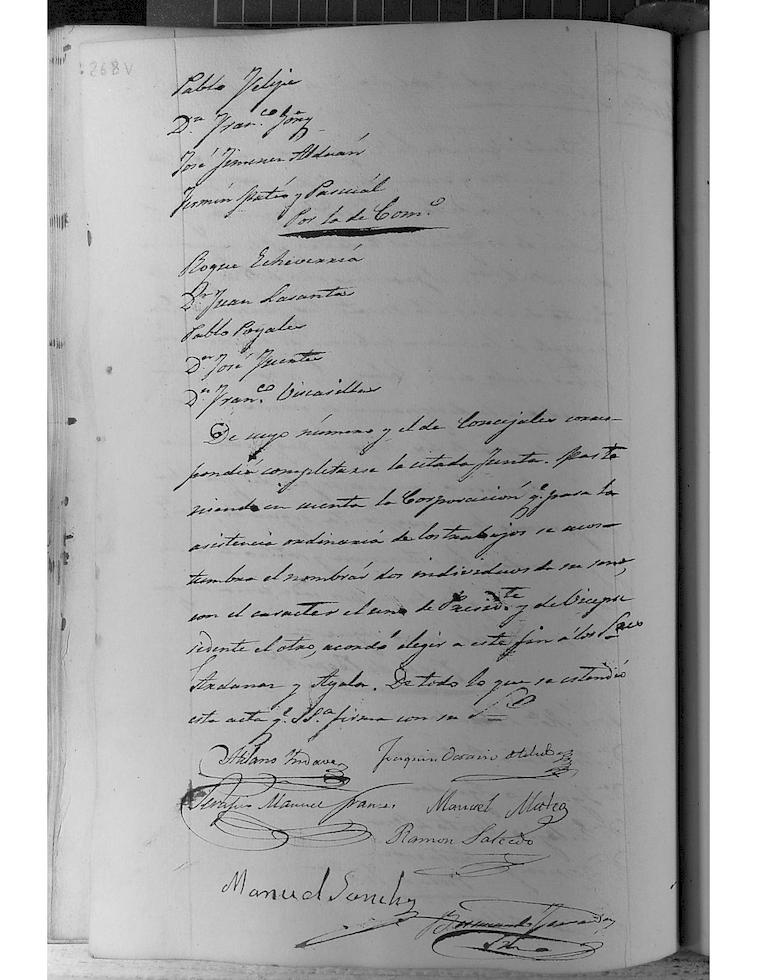 268v
Pablo Felipe
Dn Franco Goñy
José Jimenez Alduán
Fermin Mateo y Pascuál
Por la de Como
Roque Echeverria
Dn Juan Lasanta
Pablo Poyales
Dn José Fuente
Dn Franco Viscasillas
De cuyo número y el de Concejales corres-
pondiá completarse la citada Junta. Mas te
niendo en cuenta la Corporación qe para la
asistencia ordinaria de los trabajos se acos-
tumbra el nombrár dos individuos de su seno,
con el caracter el uno de Presidte y de Vicepre
sidente el otro, acordó elegir a este fin á los Sres
Andanar y Ayala. De todo lo que se estendió
esta acta qe SSa firma con su S
Manuel Mateo
Ramon Salcedo
Manuel Sanchez